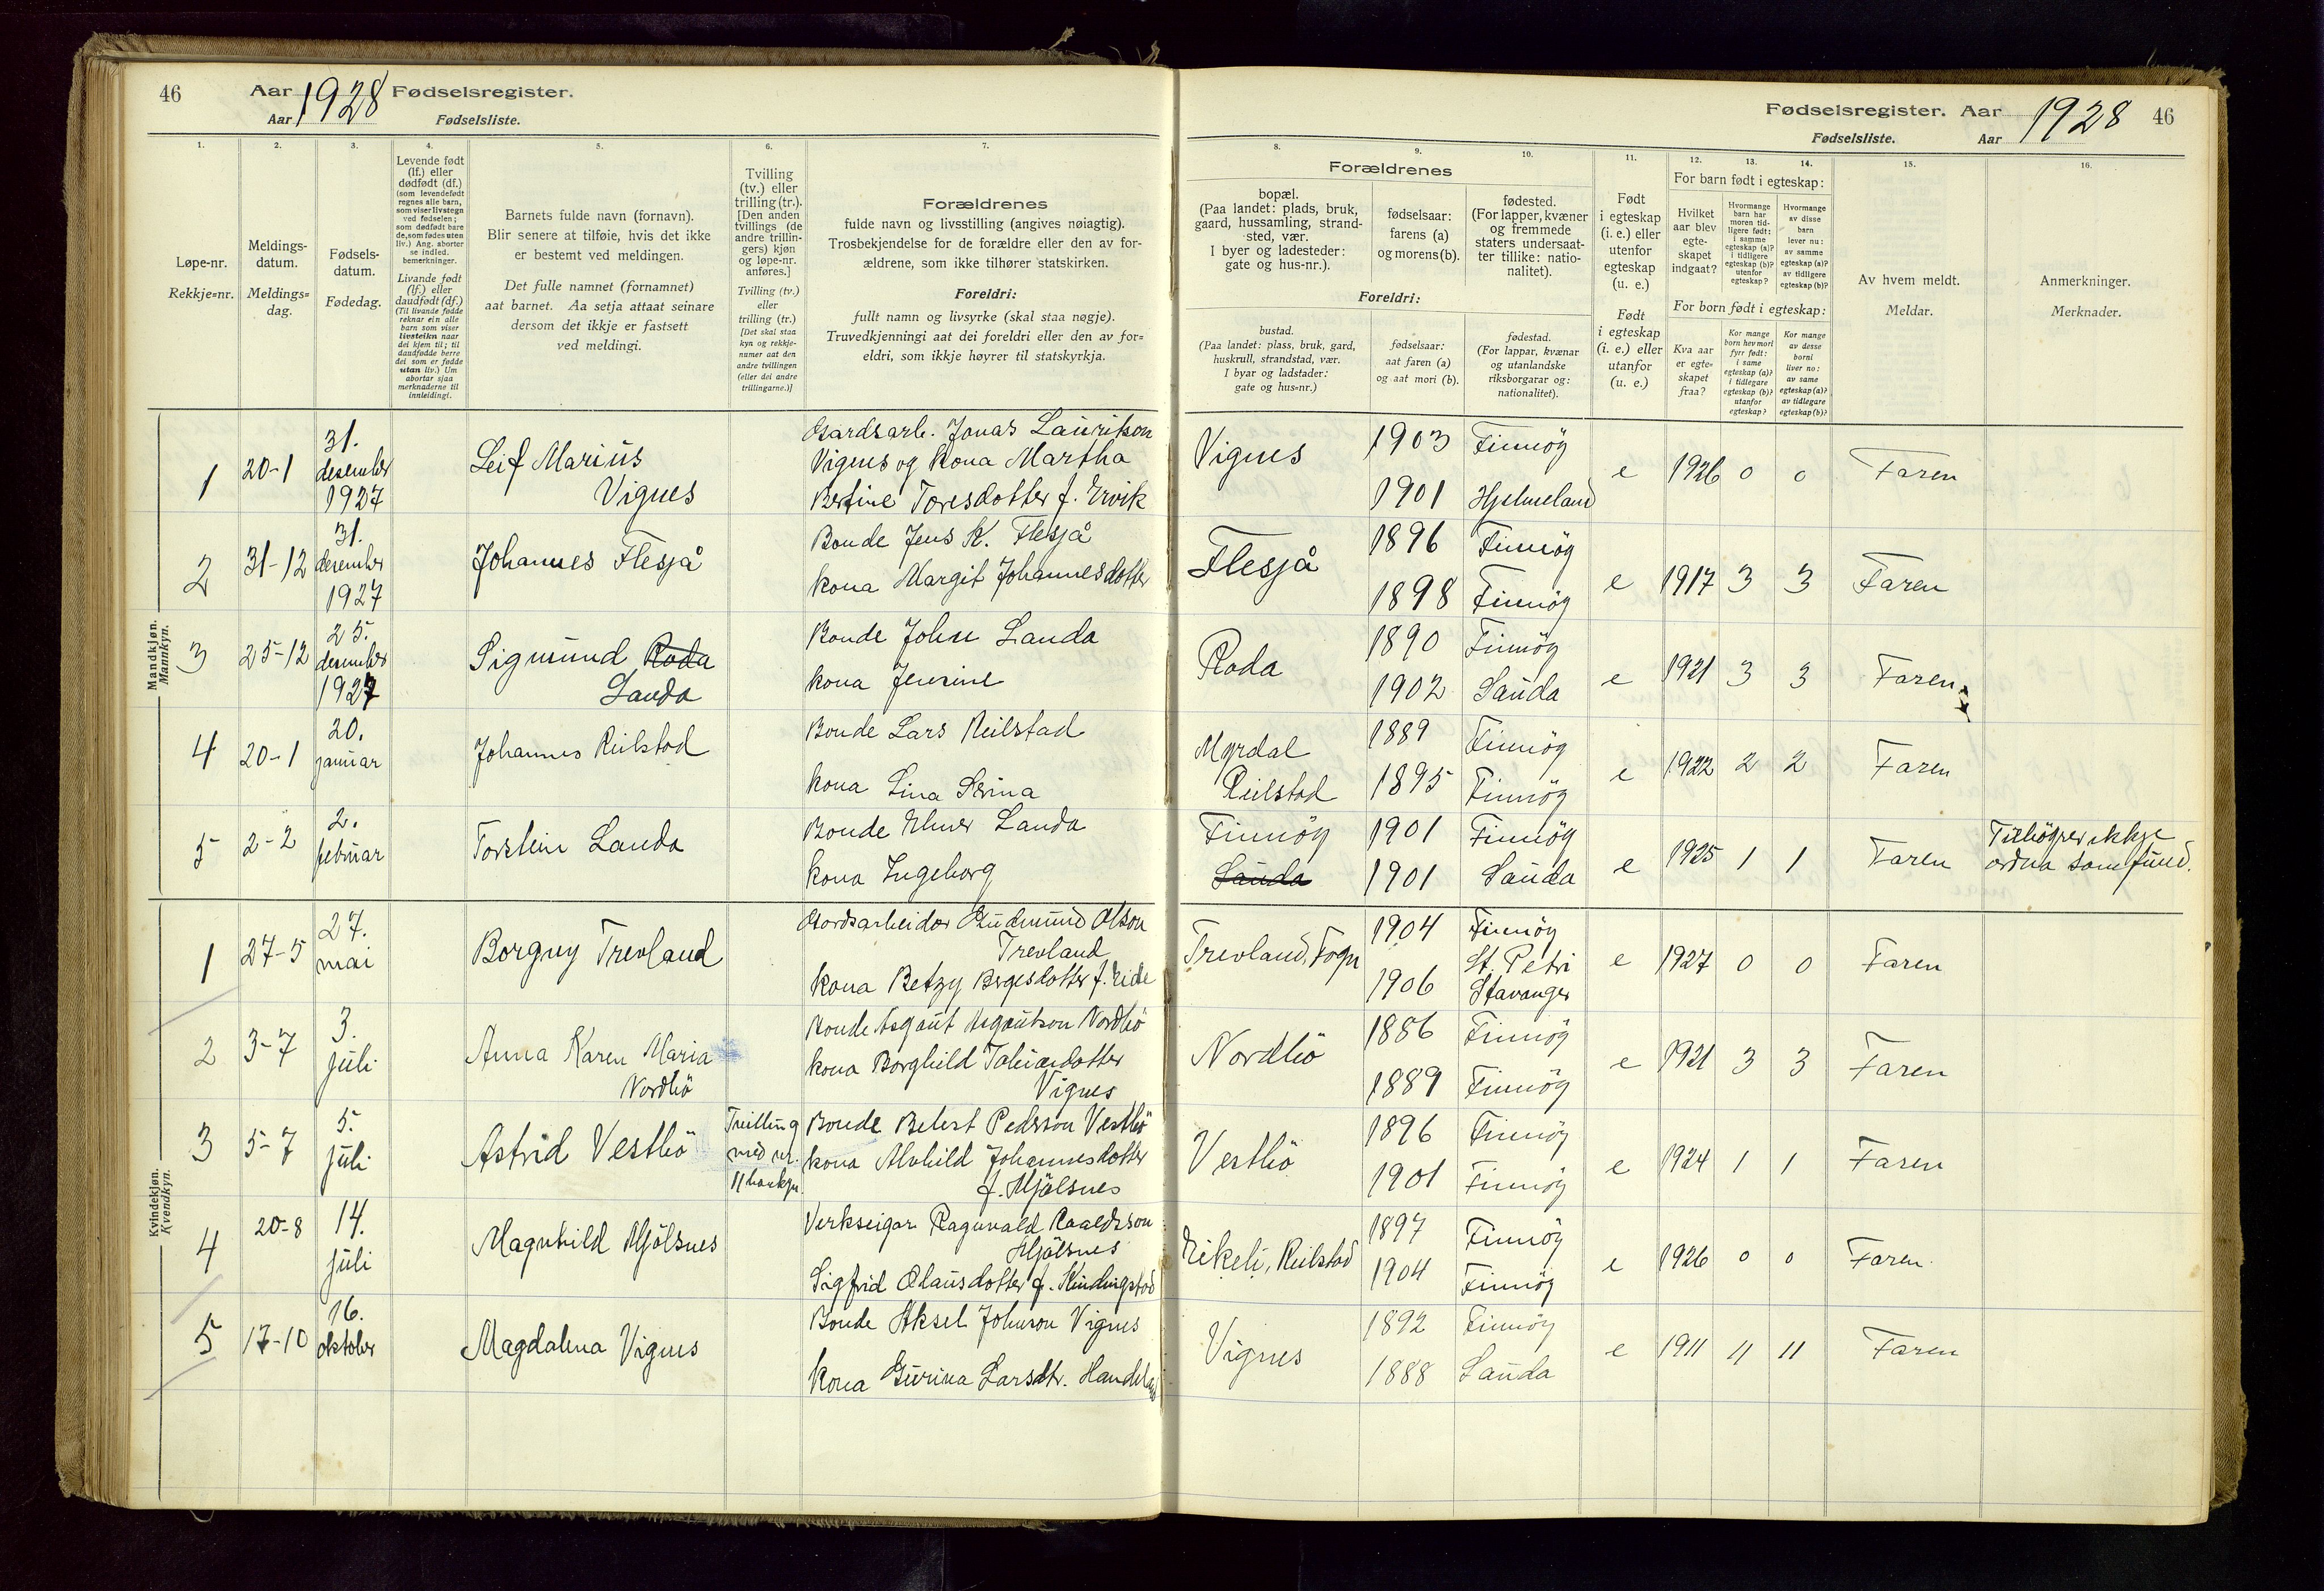 46
Aar 1928 Fødselsregister.
Aar Fødselsliste.
Fødselsregister. Aar 1928 46
Fødselsliste. Aar
1. 2. 3. 4. 5. 6. 7.
Løpe-nr.
Rekkje=nr.
Meldings-
datum.
Meldings=
dag.
Fødsels-
datum.
Fødedag.
Levende født
(lf.) eller
dødfødt (df.)
(som levendefødt
regnes alle barn,
som viser livstegn
ved fødselen;
som dødfødt bare
de, som fødes uten
liv.) Ang. aborter
se indled.
bemerkninger.
Livande født
(lf.) eller
daudfødt (df.)
(Til livande fødde
reknar ein alle
barn som viser
livsteikn naar
dei kjem til; til
daudfødde berre
dei som er fødde
utan liv.) Um
abortar sjaa
merknaderne til
innleidingi.
Barnets fulde navn (fornavn).
Blir senere at tilføie, hvis det ikke
er bestemt ved meldingen.
Det fulle namnet (fornamnet)
aat barnet. Aa setja attaat seinare
dersom det ikkje er fastsett
ved meldingi.
Tvilling
(tv.) eller
trilling (tr.).
[Den anden
tvillings (de
andre trillin-
gers) kjøn
og løpe-nr.
anføres.]
Tvilling (tv.)
eller
trilling (tr.)
[Det skal staa
kyn og rekkje-
numer aat den
andre tvillingen
(eller dei andre
trillingarne.)]
Forældrenes
fulde navn og livsstilling (angives nøiagtig).
Trosbekjendelse for de forældre eller den av for-
ældrene, som ikke tilhører statskirken.
Foreldri:
fullt namn og livsyrke (skal staa nøgje).
Truvedkjenningi aat dei foreldri eller den av for=
eldri, som ikkje høyrer til statskyrkja.
8. 9. 10. 11. 12. 13. 14. 15. 16.
Forældrenes
bopæl.
(Paa landet: plads, bruk,
gaard, hussamling, strand-
sted, vær.
I byer og ladesteder:
gate og hus-nr.).
fødselsaar:
farens (a)
og morens (b).
fødested.
(For lapper, kvæner
og fremmede
staters undersaat-
ter tillike: natio-
nalitet).
Foreldri:
bustad.
(Paa landet: plass, bruk, gard,
huskrull, strandstad, vær.
I byar og ladstader:
gate og hus=nr.)
fødselsaar:
aat faren (a)
og aat mori (b).
fødestad.
(For lappar, kvænar
og utanlandske
riksborgarar og:
nationalitet).
Født
i egteskap
(i. e.) eller
utenfor
egteskap
(u. e.)
Født
i egteskap
(i. e.) eller
utanfor
(u. e.)
For barn født i egteskap:
Hvilket
aar blev
egte-
skapet
indgaat?
Hvormange
barn har
moren tid-
ligere født:
i samme
egteskap (a)?
i tidligere
egteskap (b)?
utenfor
egteskap?
Hvormange
av disse
barn
lever nu:
av samme
egteskap (a)?
av tidligere
egteskap (b)?
For born født i egteskap:
Kva aar
er egte=
skapet
fraa?
Kor mange
born hev mori
fyrr født:
i same
egteskap (a)?
i tidlegare
egteskap (b)?
utanfor
egteskap?
Kor mange
av desse
borni
liver no:
av same
egteskap (a)?
av tidlegare
egteskap (b)?
Av hvem meldt.
Meldar.
Anmerkninger.
Merknader.
Mandkjøn.
Mannkyn.
1 20-1 31. desember 1927 Leif Marius Vignes
Gardsarb. Jonas Lauritson
Vignes og kona Martha
Bertine Toresdotter f. Ervik
Vignes 1903 Finnöy 1901 Hjelmeland e 1926 0 0 Faren
2 31-12 31. desember 1927 Johannes Flesjå
Bonde Jens K. Flesjå
kona Margit Johannesdotter
Flesjå 1896 Finnöy 1898 Finnöy e 1917 3 3 Faren
3 25-12 25. desember 1927 Sigmund Roda Landa
Bonde John Landa
kona Jenrine
Roda 1890 Finnöy 1902 Sauda e 1921 3 3 Faren
4 20-1 20. januar Johannes Reilstad
Bonde Lars Reilstad
kona Lina Serina
Myrdal Reilstad 1889 Finnöy 1895 Finnöy e 1922 2 2 Faren
5 2-2 2. februar Torstein Landa
Bonde Elmer Landa
kona Ingeborg
Finnöy Sauda 1901 Finnöy 1901 Sauda e 1925 1 1 Faren
Tilhöyrer ikkje
ordna samfund.
Kvindekjøn.
Kvendkyn.
1 27-5 27. mai Borgny Trevland
Gardsarbeidar Gudmund Olson
Trevland
kona Betzy Bergesdotter f. Eide
Trevland, Fogn 1904 Finnöy 1906 St. Petri Stavanger e 1927 0 0 Faren
2 3-7 3. juli Anna Karen Maria Nordbö
Bonde Asgaut Asgautson Nordbö
kona Borghild Tobiasdotter
Vignes
Nordbö 1886 Finnöy 1889 Finnöy e 1921 3 3 Faren
3 5-7 5. juli Astrid Vestbö
Tvilling
med nr.
11 hankyn.
Bonde Betert Pederson Vestbö
kona Alvhild Johannesdotter
f. Mjölsnes
Vestbö 1896 Finnöy 1901 Finnöy e 1924 1 1 Faren
4 20-8 14. juli Magnhild Mjölsnes
Verkseigar Ragnvald Raaldsson
Mjölsnes
Sigfrid Olausdotter f. Kindingstad
Eikeli, Reilstad 1897 Finnöy 1904 Finnöy e 1926 0 0 Faren.
5 17-10 16. oktober Magdalena Vignes
Bonde Aksel Johnson Vignes
kona Gurina Larsdtr. Handeland
Vignes 1892 Finnöy 1888 Sauda e 1911 11 11 Faren